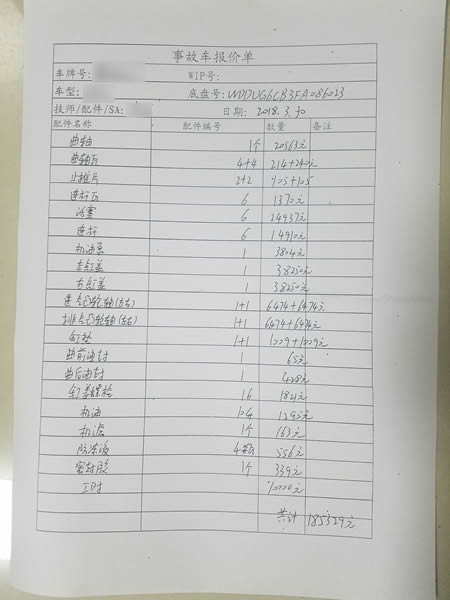 事故车报价单
车牌号: WIP号:
车型: 底盘号: WDDUG6CB3FA086023
技师/配件/SA: 日期: 2018.3.30
配件名称 配件编号 数量 备注
曲轴 1个 20563元
曲轴瓦 4+4 214+240元
止推片 2+2 105+105
连杆瓦 6 1370元
活塞 6 24937元
连杆 6 14910元
机油泵 1 3804元
左缸盖 1 38250元
右缸盖 1 38250元
进气凸轮轴(左右) 1+1 6474+6474元
排气凸轮轴(左右) 1+1 6474+6474元
缸垫 1+1 1029+1029元
曲前油封 1 65元
曲后油封 1 428元
缸盖螺栓 16 元
机油 元
机滤 1个 163元
防冻液 4瓶 556元
密封胶 1个 339元
工时 10000元
共计 185329元